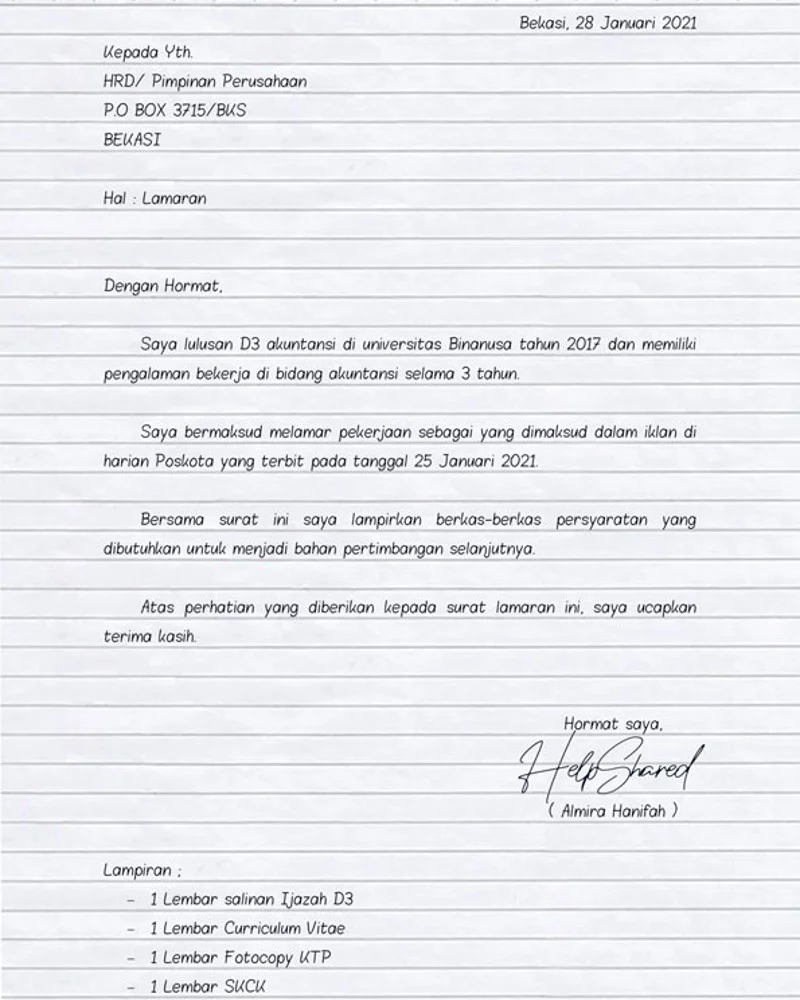 Bekasi, 28 Januari 2021
Kepada Yth.
HRD/ Pimpinan Perusahaan
P.O BOX 3715/BKS
BEKASI
Hal : Lamaran
Dengan Hormat,
Saya lulusan D3 akuntansi di universitas Binanusa tahun 2017 dan memiliki
pengalaman bekerja di bidang akuntansi selama 3 tahun.
Saya bermaksud melamar pekerjaan sebagai yang dimaksud dalam iklan di
harian Poskota yang terbit pada tanggal 25 Januari 2021.
Bersama surat ini saya lampirkan berkas-berkas persyaratan yang
dibutuhkan untuk menjadi bahan pertimbangan selanjutnya.
Atas perhatian yang diberikan kepada surat lamaran ini, saya ucapkan
terima kasih.
Hormat saya,
HelpShared
( Almira Hanifah )
Lampiran :
- 1 Lembar salinan Ijazah D3
- 1 Lembar Curriculum Vitae
- 1 Lembar Fotocopy KTP
- 1 Lembar SKCK